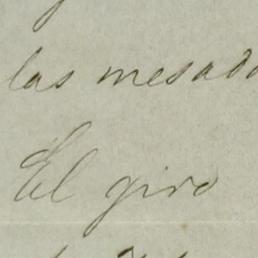 las mesada
El giro